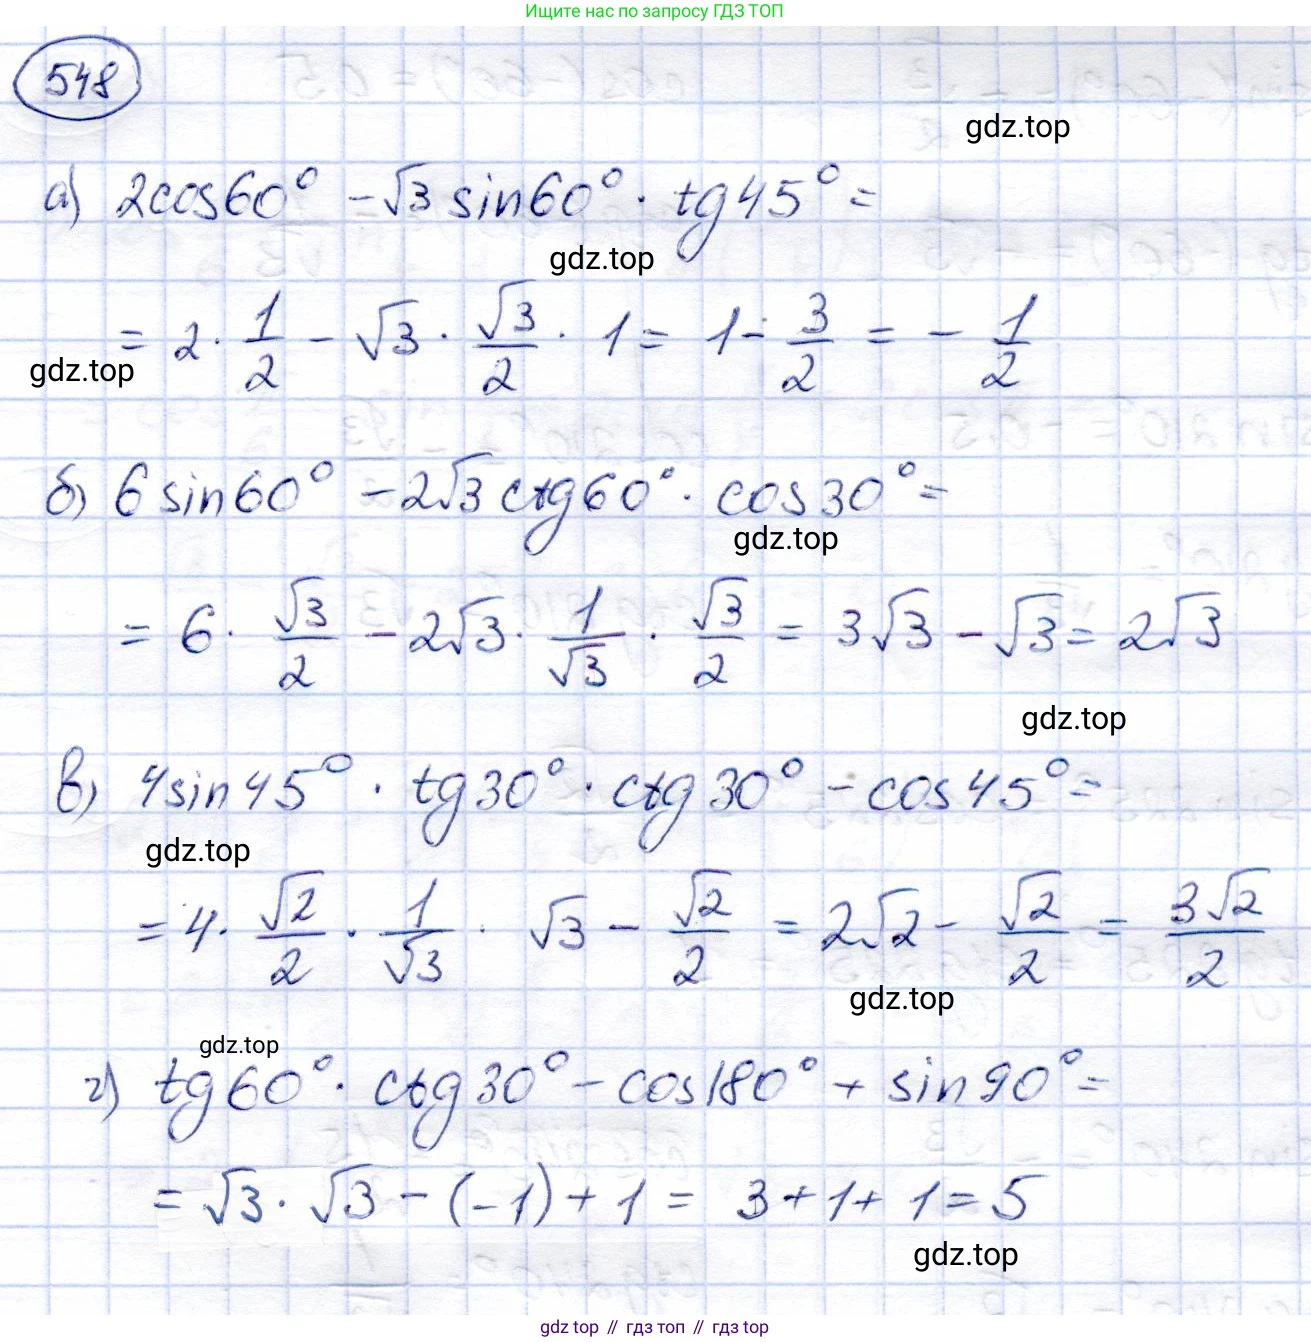 Ищите нас по запросу ГДЗ ТОП
548
gdz.top
а) 2cos60° - √3 sin60° · tg45° =
gdz.top
= 2 · 1/2 - √3 · √3/2 · 1 = 1 - 3/2 = - 1/2
gdz.top
б) 6 sin60° - 2√3 ctg60° · cos30° =
gdz.top
= 6 · √3/2 - 2√3 · 1/√3 · √3/2 = 3√3 - √3 = 2√3
gdz.top
в) 4sin45° · tg30° · ctg30° - cos45° =
gdz.top
= 4 · √2/2 · 1/√3 · √3 - √2/2 = 2√2 - √2/2 = 3√2/2
gdz.top
gdz.top
г) tg60° · ctg30° - cos180° + sin90° =
= √3 · √3 - (-1) + 1 = 3 + 1 + 1 = 5
gdz.top
gdz top // гдз топ // гдз top